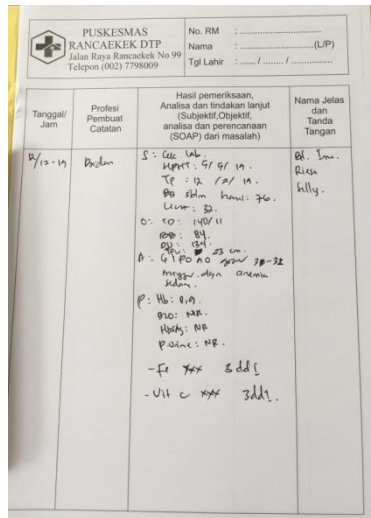 PUSKESMAS
RANCAEKEK DTP
Jalan Raya Rancaekek No 99
Telepon (002) 7798009
No. RM : ..............................
Nama : ..............................(L/P)
Tgl Lahir : ...... / ........ / ................
Tanggal/ Jam
Profesi Pembuat Catatan
Hasil pemeriksaan,
Analisa dan tindakan lanjut
(Subjektif,Objektif,
analisa dan perencanaan
(SOAP) dari masalah)
Nama Jelas
dan
Tanda
Tangan
/12-19
Bidan
S : Cek lab.
HPHT : 9/ 19.
TP : 12 / 19.
BB sblm hamil : 76.
: 32.
O : TD : 140/11
BB : 84.
: 134.
TFU : 23 cm.
A : G1P0A0 30-32
minggu dgn anemia
sedang.
P : Hb : 9,9.
: NR.
HbsAg : NR
P.urine : NR.
- Fe XXX 3dd1
- Vit C XXX 3dd1.
Bd.